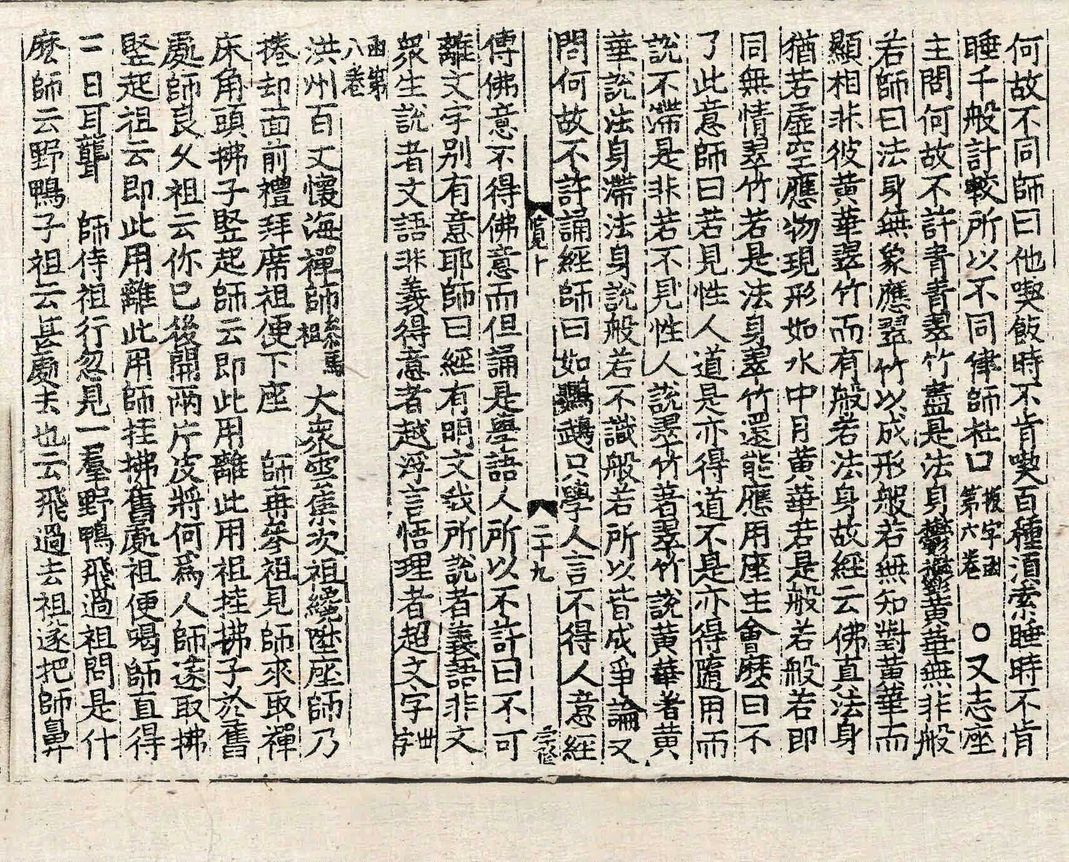 何故不同師曰他喫飯時不肯喫百種須索睡時不肯
睡千般計較所以不同律師杜口 板字函第六卷 ○又志座
主問何故不許靑靑翠竹盡是法身欝欝黃華無非般
若師曰法身無象應翠竹以成形般若無知對黃華而
顯相非彼黃華翠竹而有般若法身故經云佛眞法身
猶若虛空應物現形如水中月黃華若是般若般若即
同無情翠竹若是法身翠竹還能應用座主會麽曰不
了此意師曰若見性人道是亦得道不是亦得隨用而
說不滯是非若不見性人說翠竹著翠竹說黃華著黃
華說法身滯法身說般若不識般若所以皆成爭論又
問何故不許誦經師曰如鸚鵡只學人言不得人意經
二十九
傳佛意不得佛意而但誦是學語人所以不許曰不可
離文字別有意耶師曰經有明文我所說者義語非文
衆生說者文語非義得意者越浮言悟理者超文字 世字
函第八卷
洪州百丈懷海禪師 祖 大衆雲集次祖纔陞座師乃
捲却面前禮拜席祖便下座 師再參祖見師來取禪
床角頭拂子竪起師云即此用離此用祖挂拂子於舊
處師良久祖云你已後開兩片皮將何爲人師遂取拂
竪起祖云即此用離此用師挂拂舊處祖便喝師直得
三日耳聾 師侍祖行忽見一羣野鴨飛過祖問是什
麽師云野鴨子祖云甚處去也云飛過去祖遂把師鼻